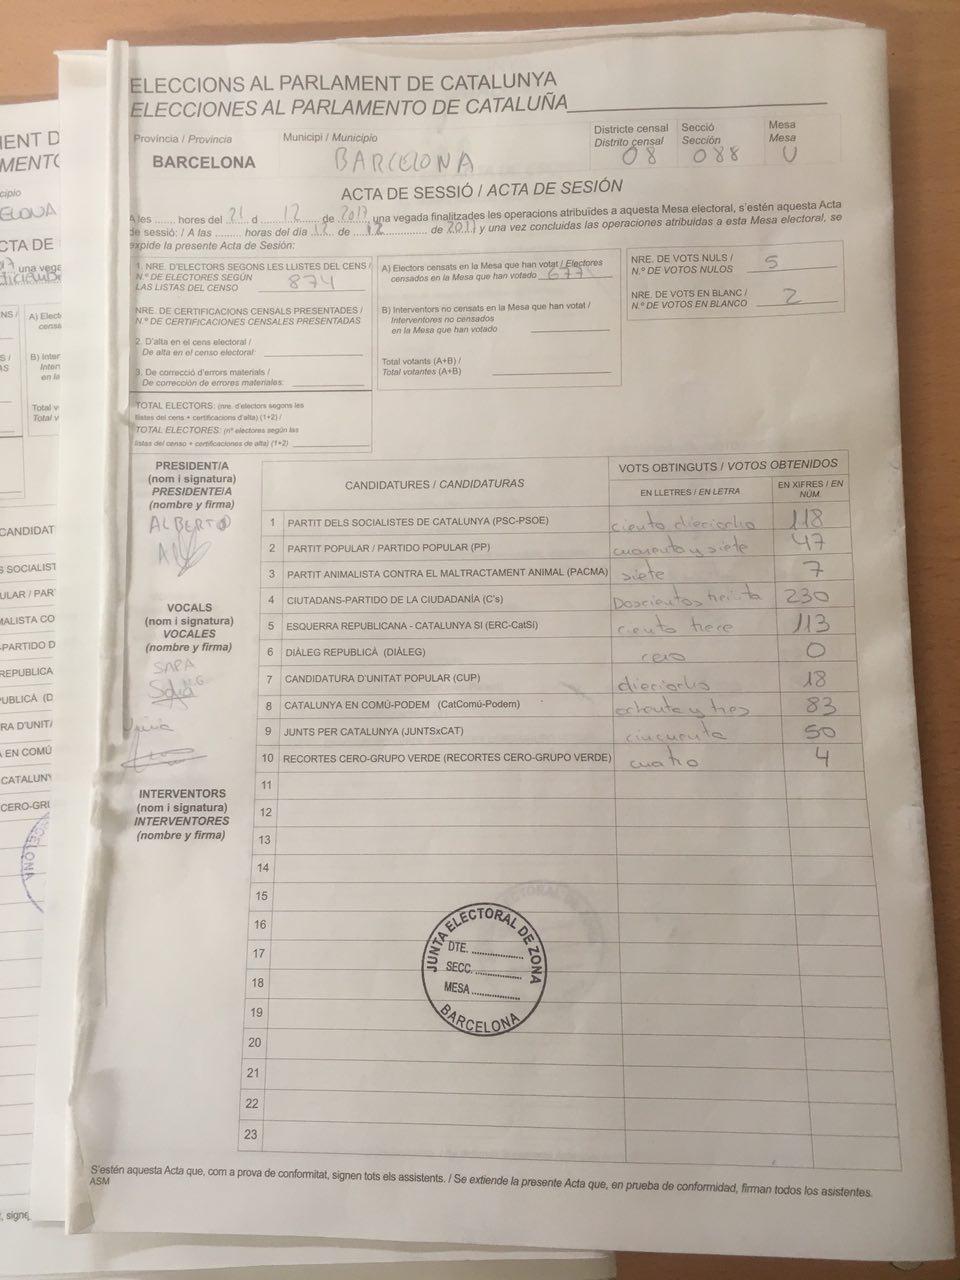 ELECCIONS AL PARLAMENT DE CATALUNYA
ELECCIONES AL PARLAMENTO DE CATALUÑA
Província / Provincia
Municipi / Municipio
Districte censal
Distrito censal
Secció
Sección
Mesa
Mesa
BARCELONA
BARCELONA
08
088
U
ACTA DE SESSIÓ / ACTA DE SESIÓN
A les ....... hores del 21 d 12 de 2017 una vegada finalitzades les operacions atribuïdes a aquesta Mesa electoral, s'estén aquesta Acta
de sessió: / A las ........ horas del día 12 de 12 de 2017 y una vez concluidas las operaciones atribuidas a esta Mesa electoral, se
expide la presente Acta de Sesión:
1. NRE. D'ELECTORS SEGONS LES LLISTES DEL CENS /
N.º DE ELECTORES SEGÚN
LAS LISTAS DEL CENSO
874
NRE. DE CERTIFICACIONS CENSALS PRESENTADES /
N.º DE CERTIFICACIONES CENSALES PRESENTADAS
2. D'alta en el cens electoral /
De alta en el censo electoral:
3. De correcció d'errors materials /
De corrección de errores materiales:
TOTAL ELECTORS: (nre. d'electors segons les
llistes del cens + certificacions d'alta) (1+2) /
TOTAL ELECTORES: (nº electores según las
listas del censo + certificaciones de alta) (1+2)
A) Electors censats en la Mesa que han votat / Electores
censados en la Mesa que han votado 677
B) Interventors no censats en la Mesa que han votat /
Interventores no censados
en la Mesa que han votado
Total votants (A+B) /
Total votantes (A+B)
NRE. DE VOTS NULS /
N.º DE VOTOS NULOS
5
NRE. DE VOTS EN BLANC /
N.º DE VOTOS EN BLANCO
2
PRESIDENT/A
(nom i signatura)
PRESIDENTE/A
(nombre y firma)
ALBERTO
VOCALS
(nom i signatura)
VOCALES
(nombre y firma)
SARA
INTERVENTORS
(nom i signatura)
INTERVENTORES
(nombre y firma)
CANDIDATURES / CANDIDATURAS
VOTS OBTINGUTS / VOTOS OBTENIDOS
EN LLETRES / EN LETRA
EN XIFRES / EN NÚM.
1 PARTIT DELS SOCIALISTES DE CATALUNYA (PSC-PSOE) ciento dieciocho 118
2 PARTIT POPULAR / PARTIDO POPULAR (PP) cuarenta y siete 47
3 PARTIT ANIMALISTA CONTRA EL MALTRACTAMENT ANIMAL (PACMA) siete 7
4 CIUTADANS-PARTIDO DE LA CIUDADANÍA (C's) Doscientos treinta 230
5 ESQUERRA REPUBLICANA - CATALUNYA SI (ERC-CatSí) ciento trece 113
6 DIÀLEG REPUBLICÀ (DIÀLEG) cero 0
7 CANDIDATURA D'UNITAT POPULAR (CUP) dieciocho 18
8 CATALUNYA EN COMÚ-PODEM (CatComú-Podem) ochenta y tres 83
9 JUNTS PER CATALUNYA (JUNTSxCAT) cincuenta 50
10 RECORTES CERO-GRUPO VERDE (RECORTES CERO-GRUPO VERDE) cuatro 4
11
12
13
14
15
16
17
18
19
20
21
22
23
JUNTA ELECTORAL DE ZONA
DTE.
SECC.
MESA
BARCELONA
S'estén aquesta Acta que, com a prova de conformitat, signen tots els assistents. / Se extiende la presente Acta que, en prueba de conformidad, firman todos los asistentes.
ASM